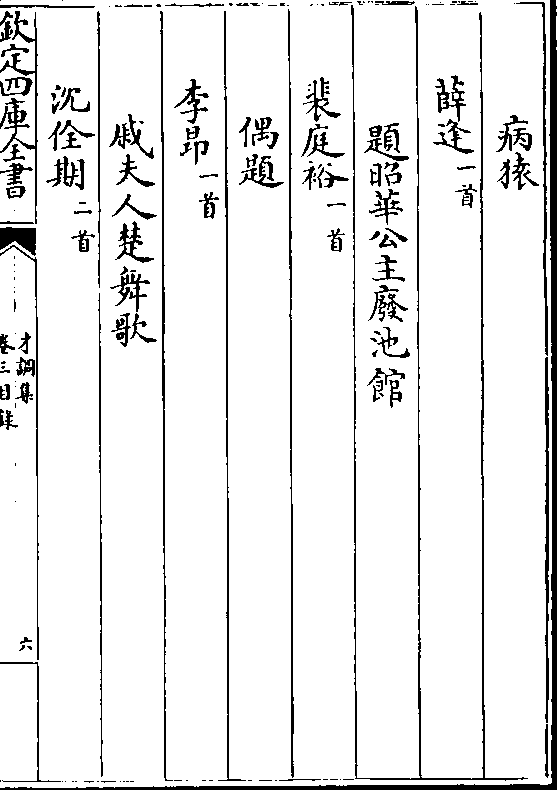 病猿
薛逢一首
題昭華公主廢池館
裴庭裕一首
偶題
李昂一首
戚夫人楚舞歌
沈佺期二首
欽定四庫全書
才調集
卷三目錄
六